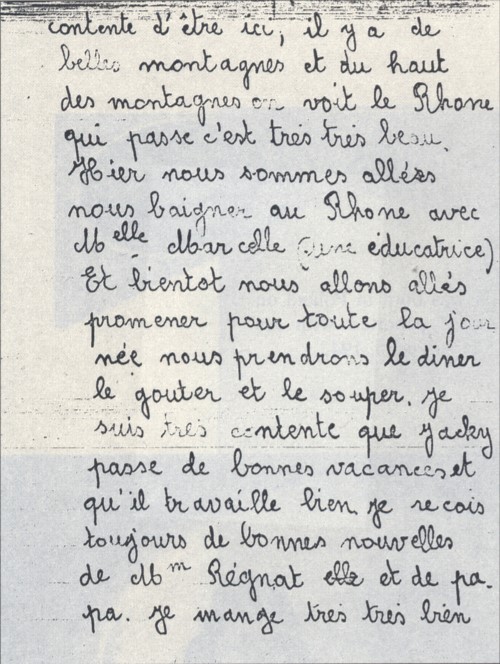 contente d'être ici, il y a de
belles montagnes et du haut
des montagnes on voit le Rhone
qui passe c'est très très beau.
Hier nous sommes allées
nous baigner au Rhone avec
Melle Marcelle (une éducatrice)
Et bientot nous allons allés
promener pour toute la jour
née nous prendrons le diner
le gouter et le souper. je
suis très contente que jacky
passe de bonnes vacances et
qu'il travaille bien. je recois
toujours de bonnes nouvelles
de Mm Régnat et de pa-
pa. je mange très très bien